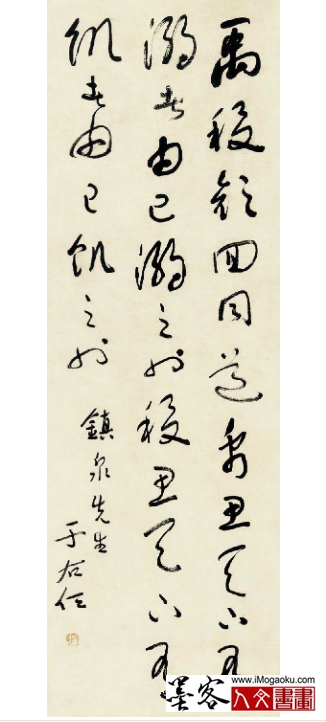 禹稷顏回同道禹思天下有
溺者由己溺之也稷思天下有
飢者由己飢之也
鎮泉先生
于右任
www.iMogaoku.com
墨客人文書畫